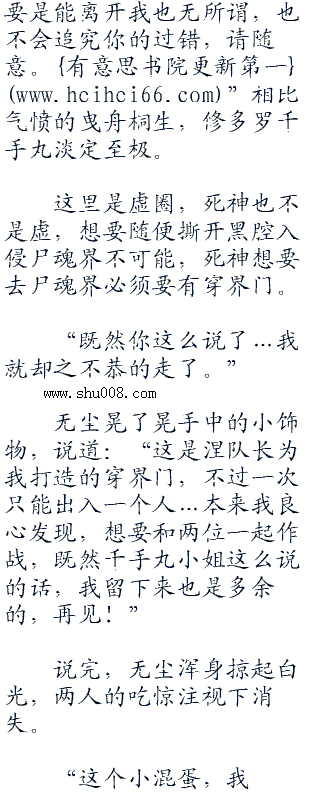 要是能离开我也无所谓，也
不会追究你的过错，请随
意。{有意思书院更新第一}
(www.hcihci66.com)”相比
气愤的曳舟桐生，修多罗千
手丸淡定至极。
这里是虚圈，死神也不
是虚，想要随便撕开黑腔入
侵尸魂界不可能，死神想要
去尸魂界必须要有穿界门。
“既然你这么说了...我
就却之不恭的走了。”
www.shu008.com
无尘晃了晃手中的小饰
物，说道：“这是涅队长为
我打造的穿界门，不过一次
只能出入一个人...本来我良
心发现，想要和两位一起作
战，既然千手丸小姐这么说
的话，我留下来也是多余
的，再见！”
说完，无尘浑身掠起白
光，两人的吃惊注视下消
失。
“这个小混蛋，我